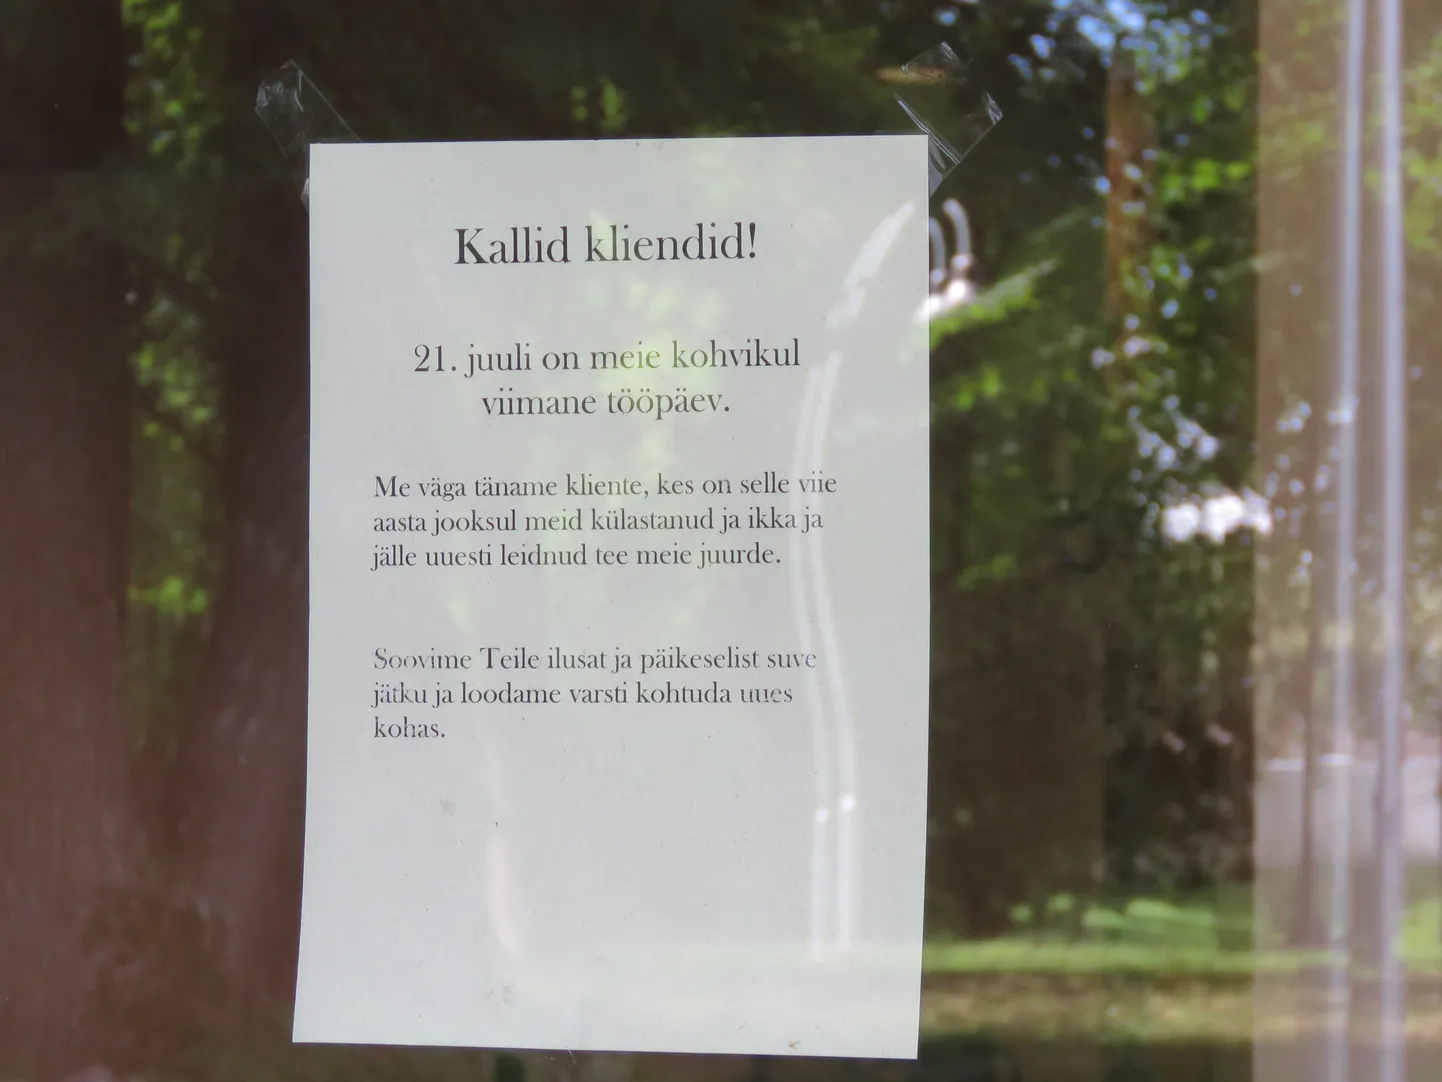 Kallid kliendid!
21. juuli on meie kohvikul
viimane tööpäev.
Me väga täname kliente, kes on selle viie
aasta jooksul meid külastanud ja ikka ja
jälle uuesti leidnud tee meie juurde.
Soovime Teile ilusat ja päikeselist suve
jätku ja loodame varsti kohtuda uues
kohas.